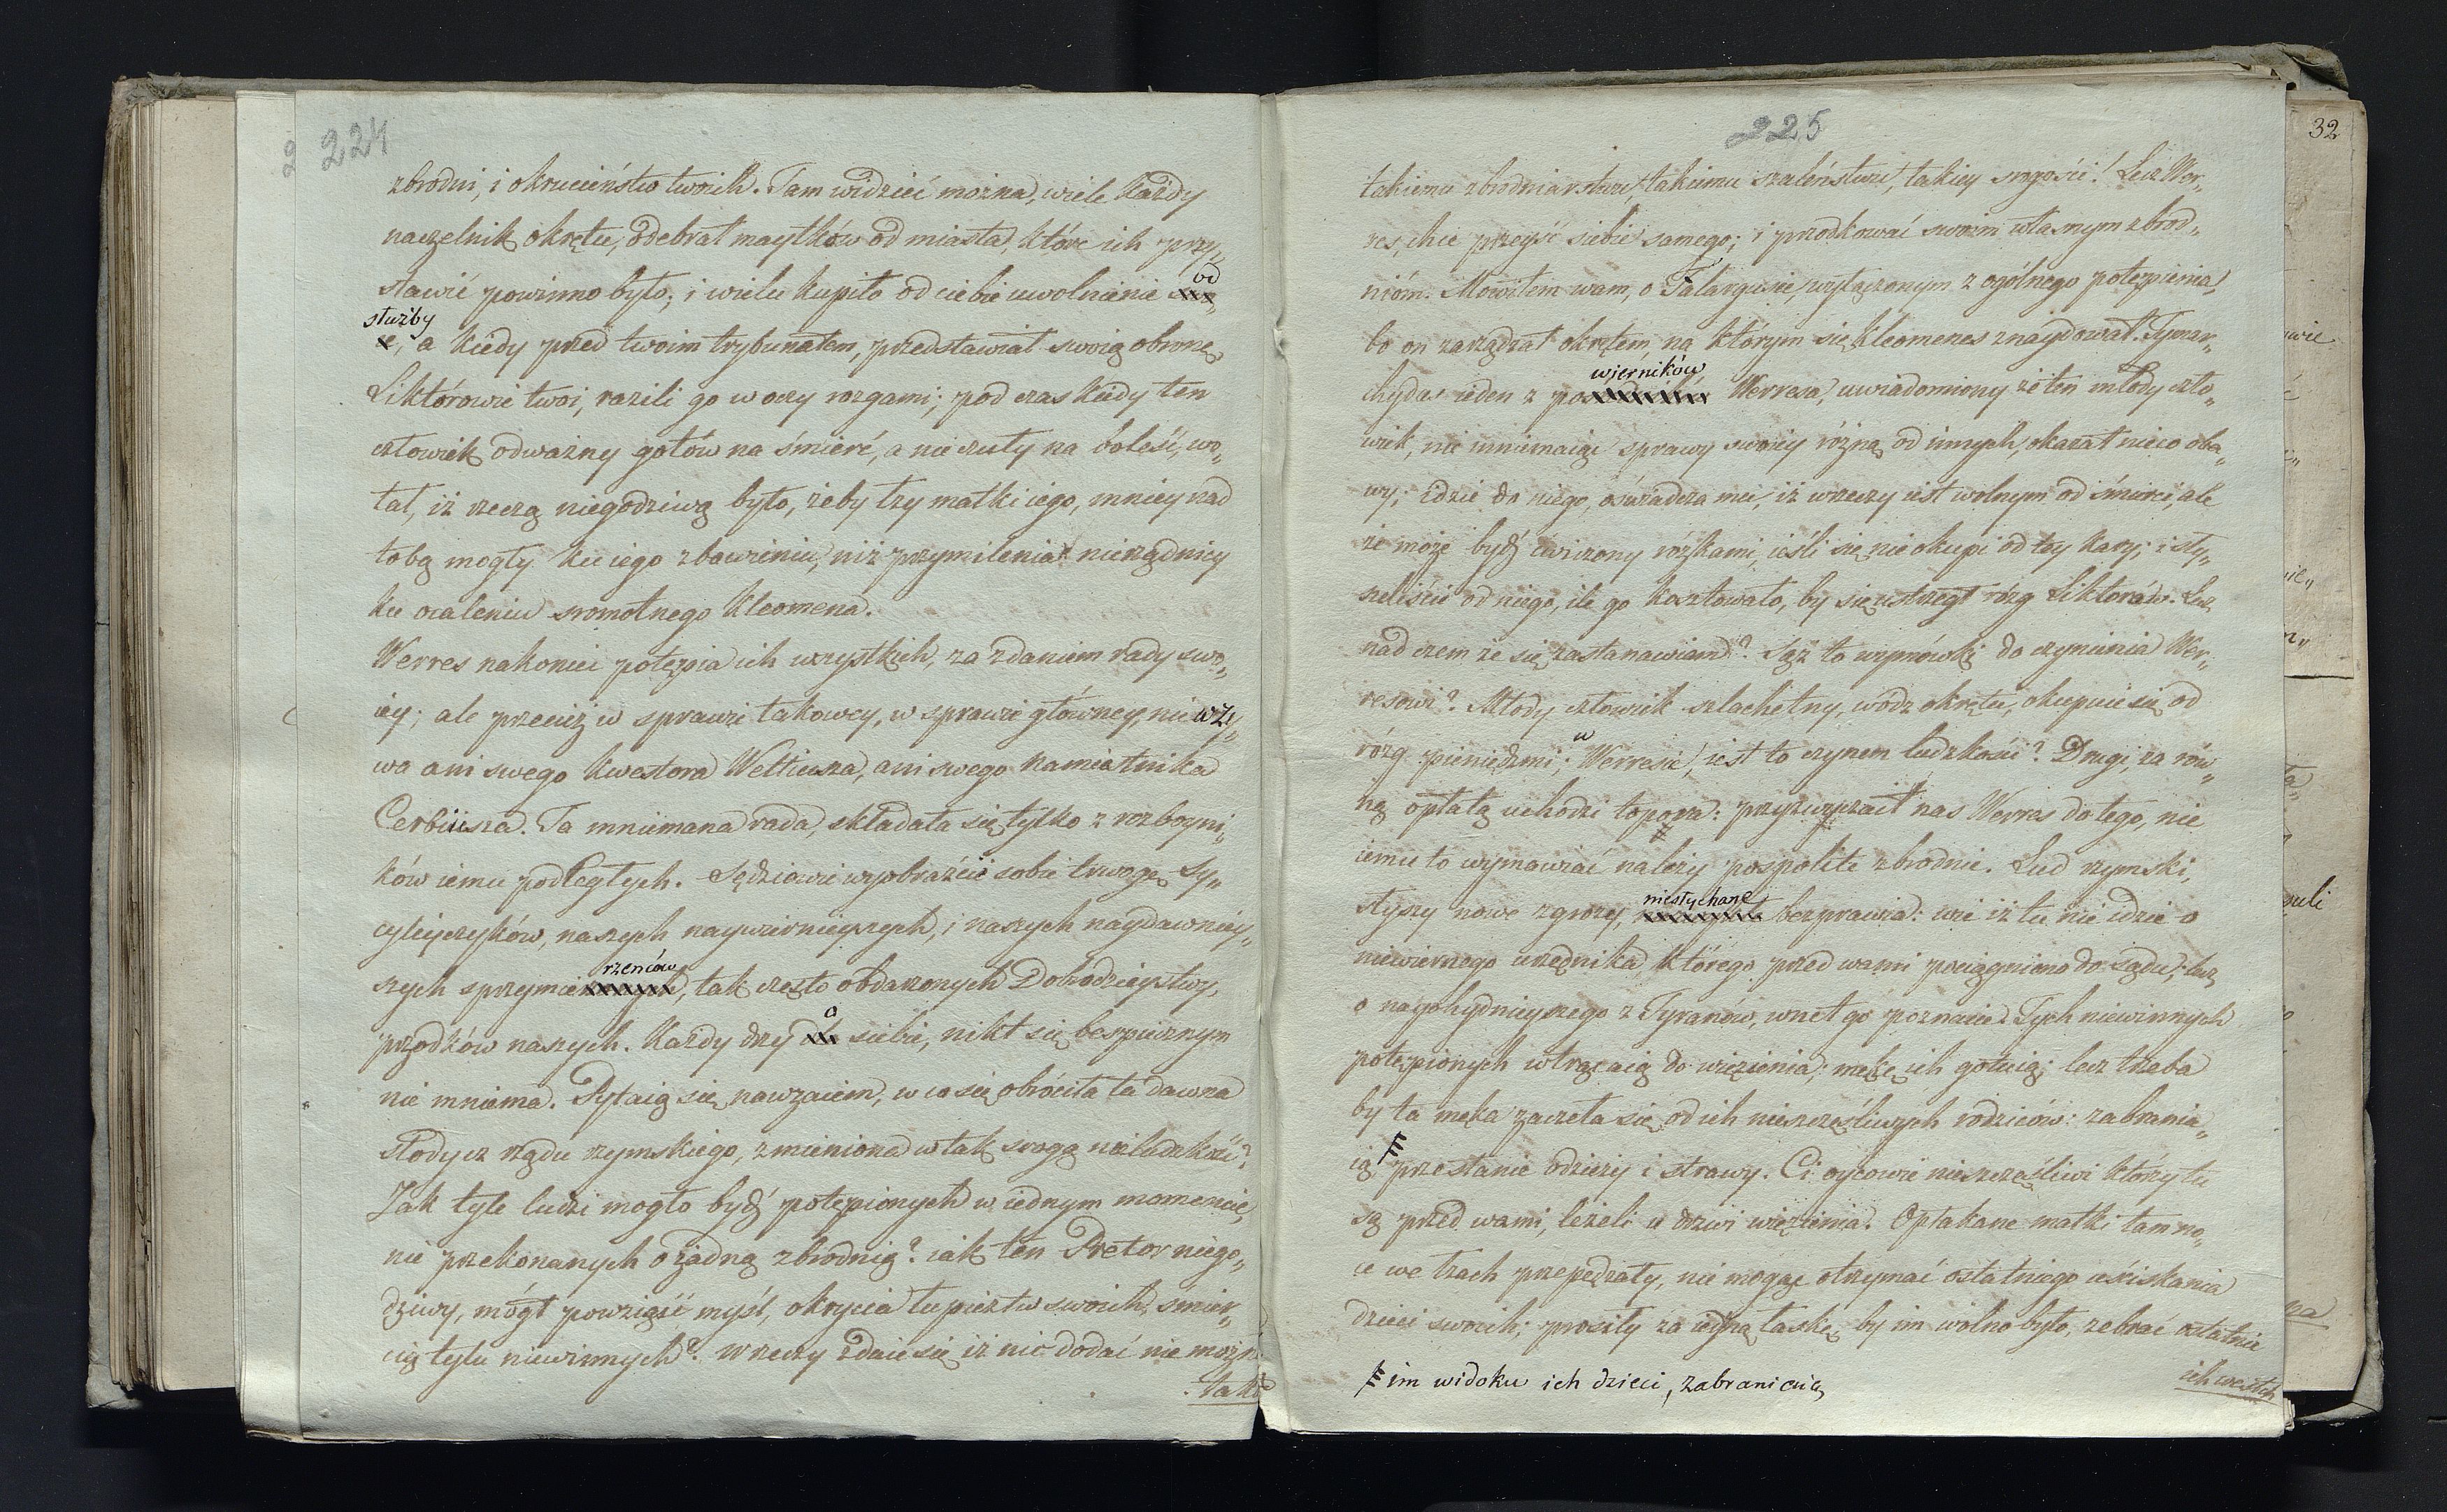 224
zbrodni, i okrucieństw twoich. Tam widzieć można, wiele każdy
naczelnik okrętu, odebrał maytków od miasta, które ich przy„
stawić powinno było; i wielu kupiło od ciebie uwolnienie od
służby, a kiedy przed twoim trybunałem, przedstawiał swoią obronę,
Liktórowie twoi, razili go w oczy rozgami; pod czas kiedy ten
człowiek odważny gotów na śmierć, a nie czuły na boleść, wo„
łał, iż rzeczą niegodziwą było, żeby łzy matki iego, mniey nad
tobą mogły ku iego zbawieniu, niż przymilenia nierządnicy
ku ocaleniu sromotnego Kleomena.
Werres nakoniec potępia ich wszystkich, za zdaniem rady swo„
iey; ale przecież w sprawie takowey, w sprawie główney, nie wzy„
wa ani swego kwestora Wettiusza, ani swego namiatnika
Cerbiusza. Ta mniemana rada, składała się tylko z rozboyni„
ków iemu podległych. Sędziowie wyobraźcie sobie trwogę Sy„
cyliyczyków, naszych naywiernieyszych, i naszych naydawniey„
szych sprzymierzeńców, tak często obdarzonych Dobrodzieystwy,
przodków naszych. Każdy drży o siebie, nikt się bespiecznym
nie mniema. Pytaią się nawzaiem, w co się obróciła ta dawna
słodycz rządu rzymskiego, zmieniona w tak srogą nieludzkość?
Jak tyle ludzi mogło bydź potępionych w iednym momencie,
nie przekonanych o żadną zbrodnią? iak ten Pretor niego„
dziwy, mógł powziąść myśl, okrycia łupieztw swoich, śmier„
cią tylu niewinnych? W rzeczy zdaie się iż nic dodać nie można
takie
225
32
takiemu zbrodniarstwu, takiemu szaleństwu, takiey srogości! Lecz Wer„
res, chce przeyść siebie samego; i przodkować swoim własnym zbrod„
nióm. Mówiłem wam, o Falargusie, wyłączonym z ogólnego potępienia,
bo on zarządzał okrętem, na którym się Kleomenes znaydował. Tymar„
chydes ieden z powierników Werresa, uwiadomiony że ten młody czło„
wiek, nie mniemaiąc sprawy swoiey różną od innych, okazał nieco oba„
wy; idzie do niego, oświadcza mu, iż w rzeczy iest wolnym od śmierci, ale
że może bydź ćwiczony rózkami, ieśli się nie okupi od tey kary; i sły„
szeliście od niego, ile go kosztowało, by się ustrzegł rózg Liktorów. Lecz
nad czem że się zastanawiam? Sąż to wymówki do czynienia Wer„
resowi? Młody człowiek szlachetny, wódz okrętu, okupuie się od
rózg pieniędzmi; w Werresie, iest to czynem ludzkości? Drugi, za rów„
ną opłatą uchodzi topora: przyzwyczaił nas Werres do tego, nie
iemu to wymawiać należy pospolite zbrodnie. Lud rzymski,
słyszy nowe zgrozy, niesłychane bezprawia: wie iż tu nie idzie o
niewiernego urzędnika, którego przed wami pociągniono do sądu; lecz
o nayohydnieyszego z Tyranów, wnet go poznacie. Tych niewinnych
potępionych wtrącaią do więzienia; mękę ich gotuią; lecz trzeba
by ta męka zaczęła się od ich nieszczęśliwych rodziców: zabrania„
ią przesłanie odzieży i strawy. Ci oycowie nieszczęśliwi którzy tu
są przed wami, leżeli u drzwi więzienia. Opłakane matki tam no„
ce we łzach przepędzały, nie mogąc otrzymać ostatniego uściskania
dzieci swoich; prosiły za iedyną łaskę, by im wolno było, zebrać ostatnie
ich westch
im widoku ich dzieci, zabraniaią